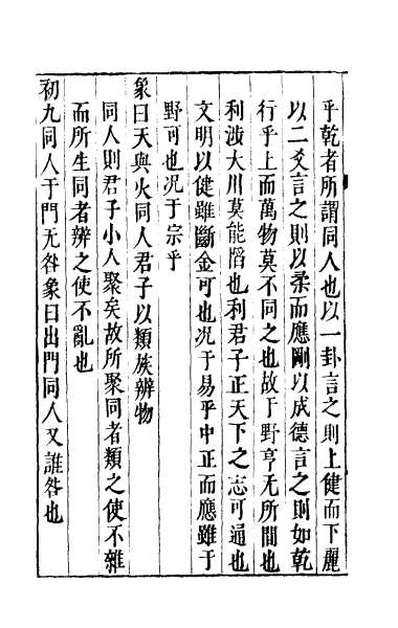 乎乾者所謂同人也以一卦言之則上健而下麗
以二爻言之則以柔而應剛以成德言之則如乾
行乎上而萬物莫不同之也故于野亨无所間也
利涉大川莫能慆也利君子正天下之志可通也
文明以健雖斷金可也况于易乎中正而應雖于
野可也况于宗乎
象曰天與火同人君子以類族辨物
同人則君子小人聚矣故所聚同者類之使不雜
而所生同者辨之使不亂也
初九同人于門无咎象曰出門同人又誰咎也